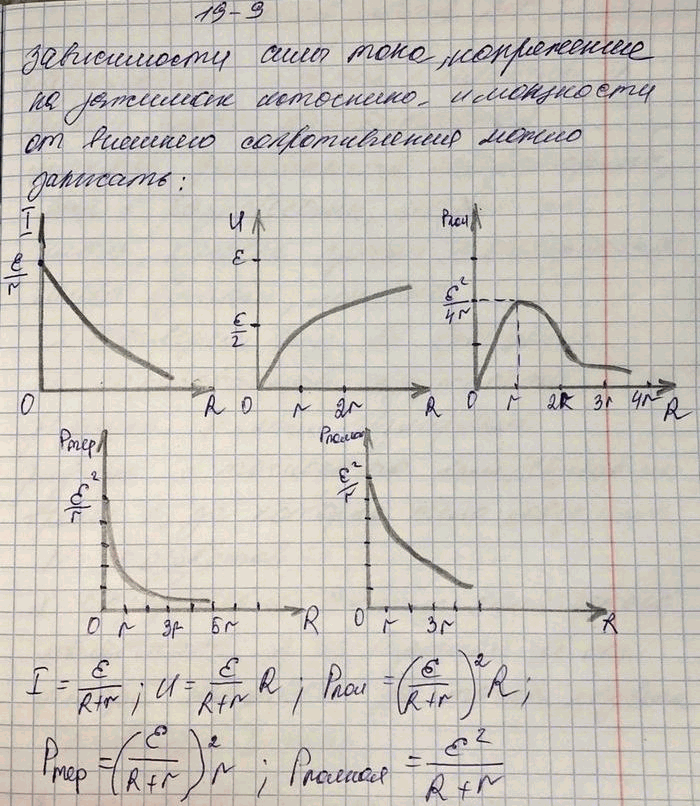 19-9
Зависимости силы тока, напряжение
на зажимах источника и мощности
от внешнего сопротивления можно
записать:
I U Pпол
ε/r ε ε/2 ε²/4r
0 R 0 r 2r R 0 r 2R 3r 4r R
Pтер Pполная
ε²/r ε²/r
0 r 3r 5r R 0 r 3r R
I = ε/(R+r) ; U = ε/(R+r) R ; Pпол = (ε/(R+r))² R ;
Pтер = (ε/(R+r))² r ; Pполная = ε²/(R+r)